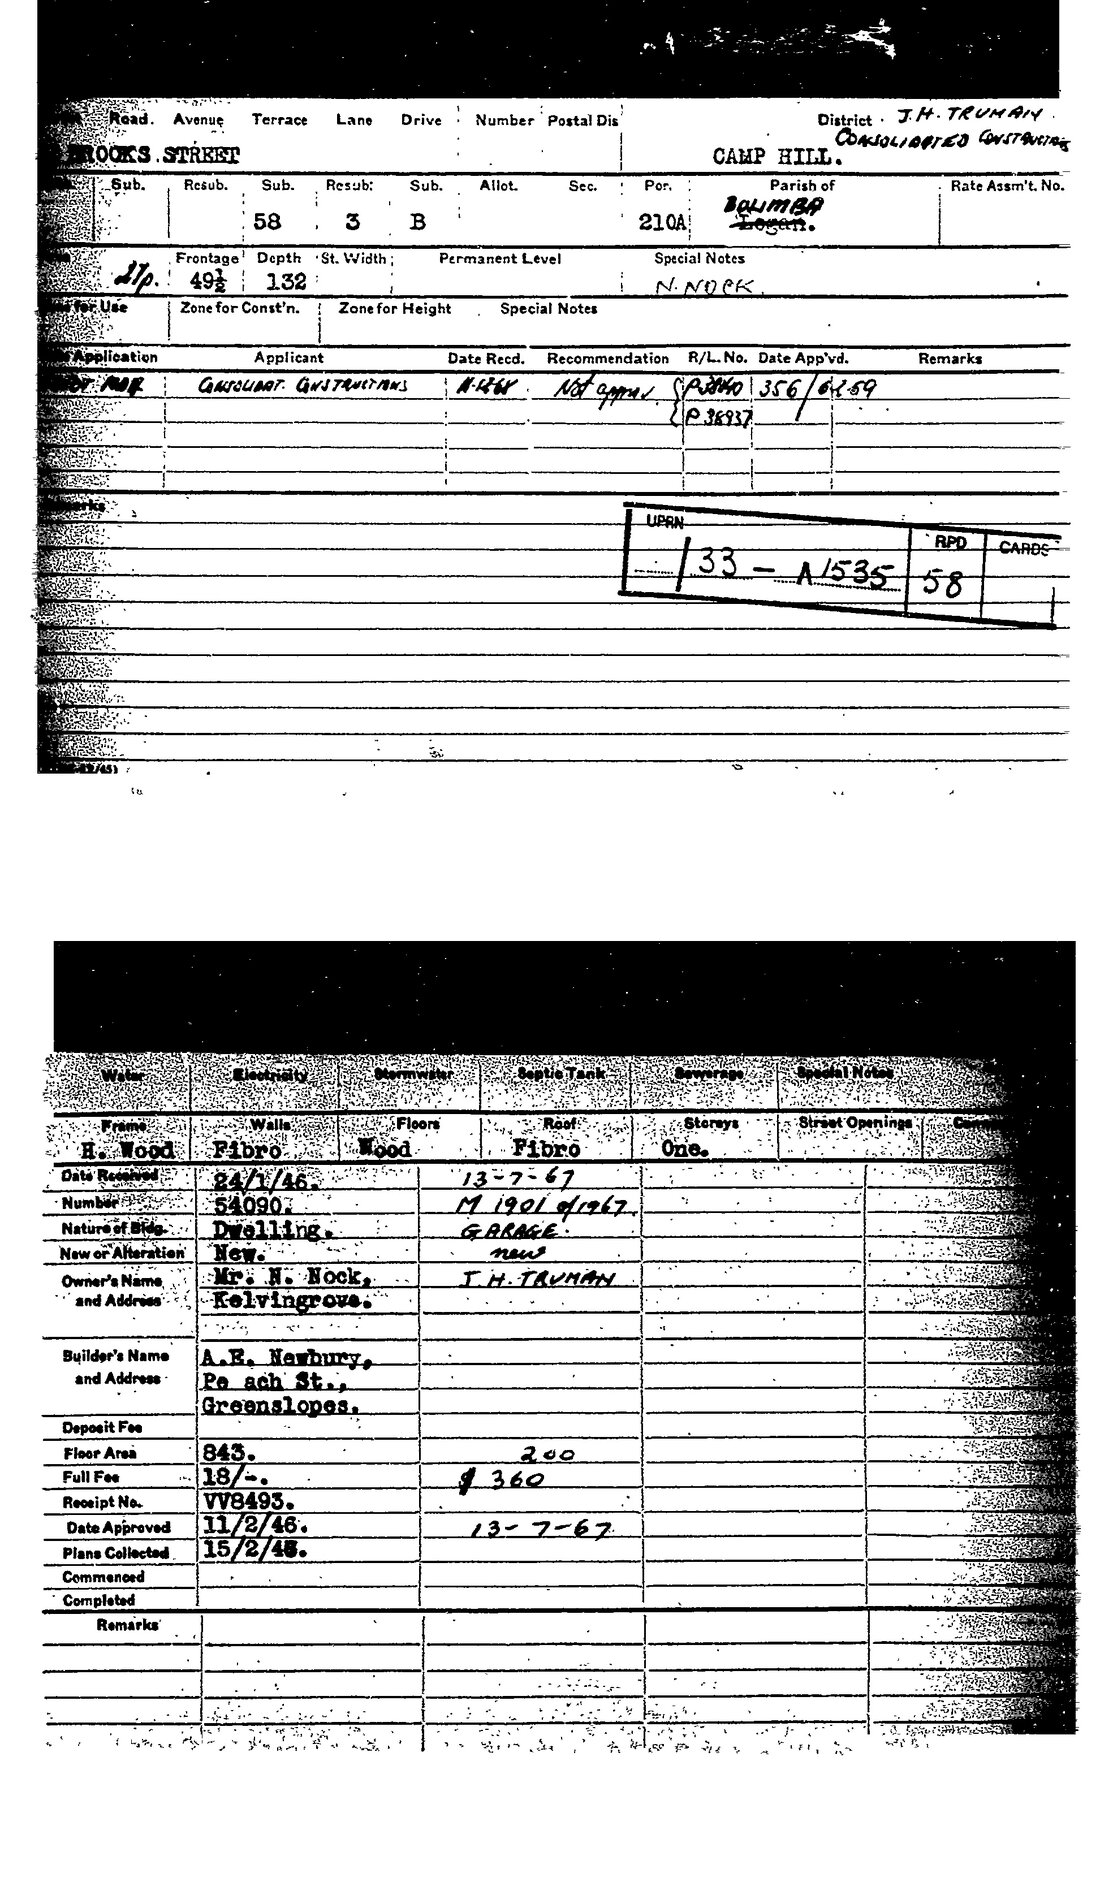 Road. Avenue Terrace Lane Drive Number Postal Dis District. J.H. TRUMAN.
CONSOLIDATED CONSTRUCTIONS
BROOKS STREET CAMP HILL.
Sub. Resub. Sub. Resub: Sub. Allot. Sec. Por. Parish of Rate Assm't. No.
BULIMBA
58 3 B 210A Logan.
Frontage Depth St. Width Permanent Level Special Notes
27p. 49½ 132 N. NOCK.
for Use Zone for Const'n. Zone for Height Special Notes
Application Applicant Date Recd. Recommendation R/L. No. Date App'vd. Remarks
CONSOLIDAT. CONSTRUCTIONS Not approv. 356/
P 38937
UPRN RPD CARDS
/ 33 - A1535 58
Water Electricity Stormwater Septic Tank Sewerage Special Notes
Frame Walls Floors Roof Storeys Street Openings
H. Wood Fibro Wood Fibro One.
Date Received 24/1/46. 13-7-67
Number 54090. M 1901 of 1967.
Nature of Bldg. Dwelling. GARAGE.
New or Alteration New. new
Owner's Name Mr. N. Nock, J H. TRUMAN
and Address Kelvingrove.
Builder's Name A.E. Newbury,
and Address Pe ach St.,
Greenslopes.
Deposit Fee
Floor Area 843. 200
Full Fee 18/-. $ 360
Receipt No. VV8493.
Date Approved 11/2/46. 13-7-67.
Plans Collected 15/2/46.
Commenced
Completed
Remarks